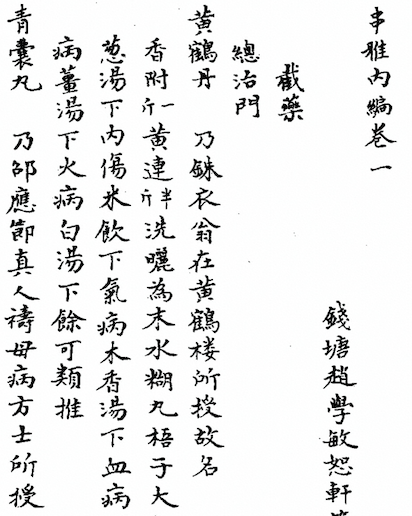 串雅内編卷一
錢塘趙學敏恕軒
截藥
總治門
黄鶴丹 乃銖衣翁在黄鶴楼所授故名
香附一斤黄連半斤洗曬為末水糊丸梧子大
葱湯下内傷米飲下氣病木香湯下血病
病薑湯下火病白湯下餘可類推
青囊丸 乃邵應節真人禱母病方士所授